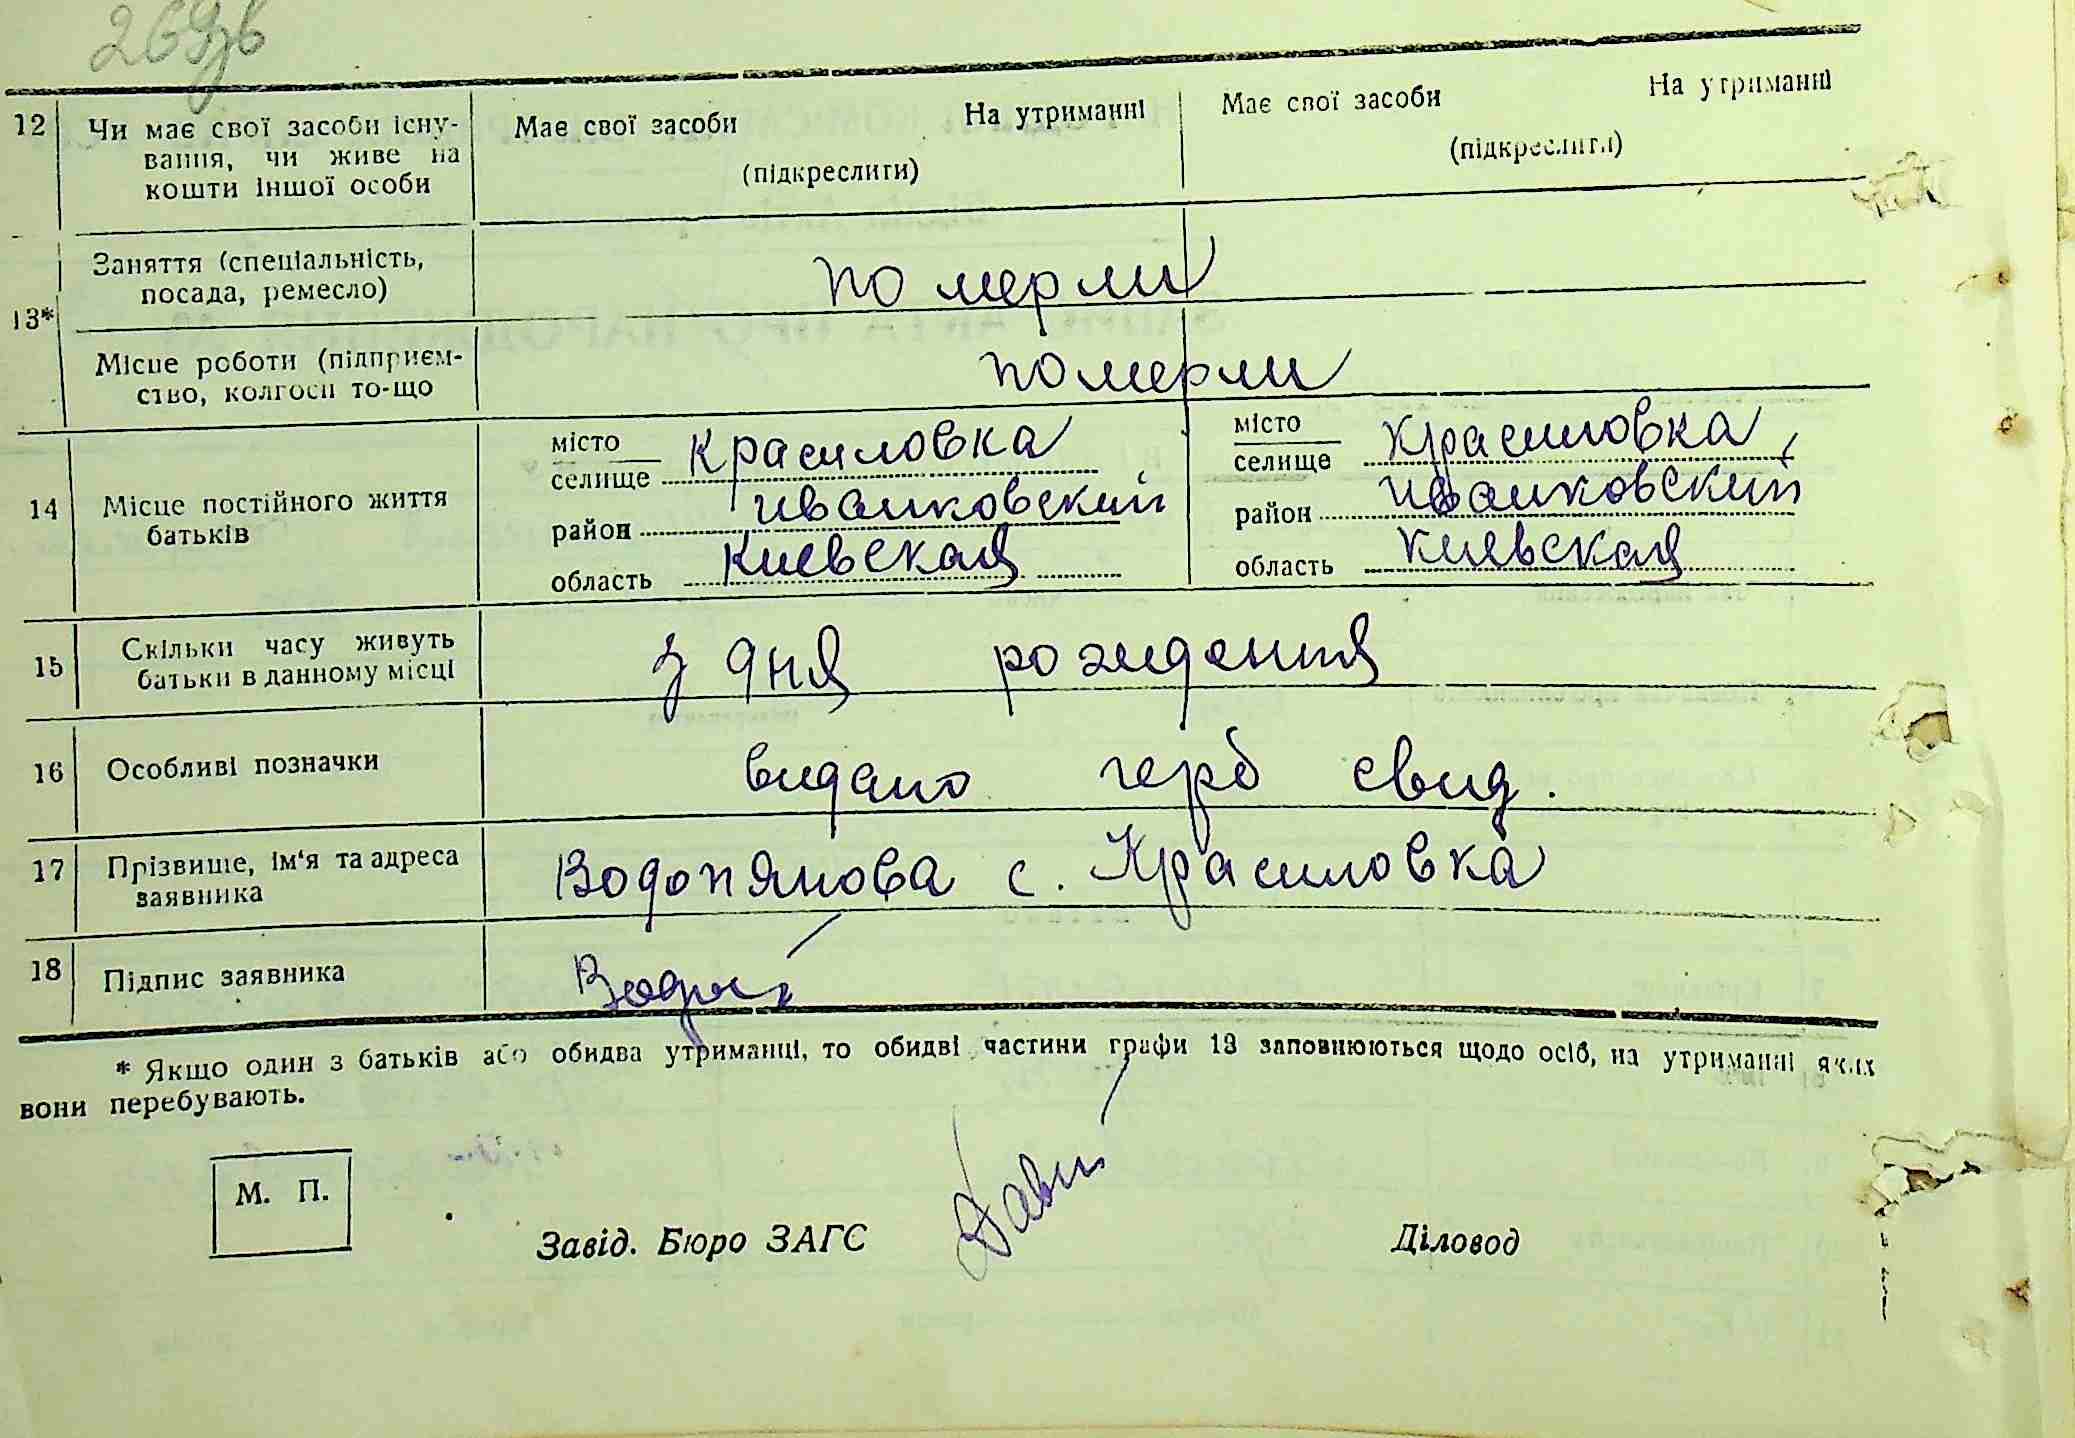 269зв
12 Чи має свої засоби існу- Має свої засоби На утриманні Має свої засоби На утриманні
вання, чи живе на (підкреслити) (підкреслити)
кошти іншої особи
13*
Заняття (спеціальність, по мерли
посада, ремесло)
Місце роботи (підприєм- померли
ство, колгосп то-що
14 Місце постійного життя батьків
місто селище Красиловка місто селище Красиловка,
район иванковский район иванковский
область Киевская область Киевская
15 Скільки часу живуть з дня рождення
батьки в данному місці
16 Особливі позначки видано герб свид.
17 Прізвище, ім'я та адреса Водопянова с. Красиловка
заявника
18 Підпис заявника
* Якщо один з батьків або обидва утриманці, то обидві частини графи 13 заповнюються щодо осіб, на утриманні яких
вони перебувають.
М. П.
Завід. Бюро ЗАГС Діловод